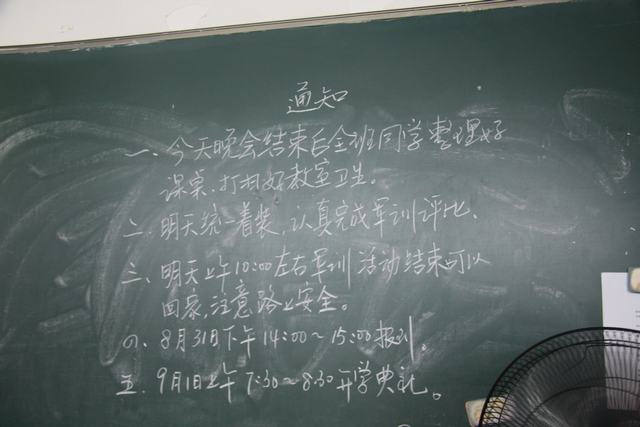 通知
一、今天晚会结束后全班同学整理好
课桌、打扫好教室卫生、
二、明天统一着装、认真完成军训评比、
三、明天上午10:00左右军训活动结束可以
回家,注意路上安全。
四、8月31日下午14:00~15:00报到、
五、9月1日上午7:30~8:30开学典礼。